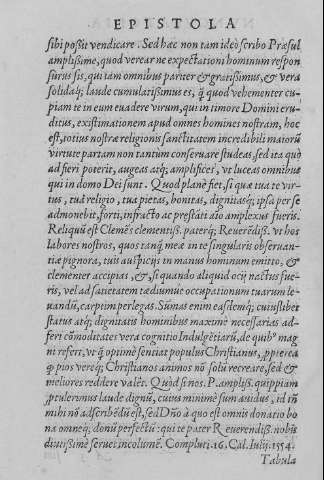 EPISTOLA
sibi possit vendicare. Sed hæc non tam ideò scribo Præsul
amplissime, quod verear ne expectationi hominum respon
surus sis, qui tam omnibus pariter & gratissimus, & vera
solidaq; laude cumulatissimus es, q̃ quod vehementer cu-
piam te in eum euadere virum, qui in timore Domini eru-
ditus, existimationem apud omnes homines nostram, hoc
est, totius nostræ religionis sanctitatem incredibili maiorũ
virtute partam non tantum conseruare studeas, sed ita quò
ad fieri poterit, augeas atq; amplifices, vt luceas omnibus
qui in domo Dei sunt. Quod planè fiet, si quæ tua te vir-
tus, tuâ religio, tua pietas, bonitas, dignitasq; ipsa per se
admonebit, forti, infracto ac præstãti aĩo amplexus fueris.
Reliquũ est Clemẽs clementiss. paterq; Reuerẽdiss. vt hos
labores nostros, quos tanq̃ meæ in te singularis obseruan-
tiæ pignora, tuis auspicijs in manus hominum emitto, &
clementer accipias, &, si quando aliquid ocij nactus fue-
ris, vel ad satietatem tædiumúe occupationum tuarum le-
uandũ, carptim perlegas. Sũmas enim easdemq; cuiuslibet
status atq; dignitatis hominibus maximè necessarias ad-
feri cõmoditates vera cognitio Indulgẽtiarũ, de quibꝰ mag
ni refert, vt q̃ optimè sentiat populus Christianus, ꝓpterea
q̃ pios verèq; Christianos animos nõ solũ recreare, sed &
meliores reddere valẽt. Quòd si nos. P. ampliss. quippiam
ꝓtulerimus laude dignũ, cuius minimè sum auidus, id iñ
mihi nõ adscribẽdũ est, sed Dño à quo est omnis donatio bo
na omneq; donũ perfectũ: qui te pater Reuerendiss. nobis
diutissimè seruet incolumẽ. Compluti. 16. Cal. Iulij. 1554.
Tabula